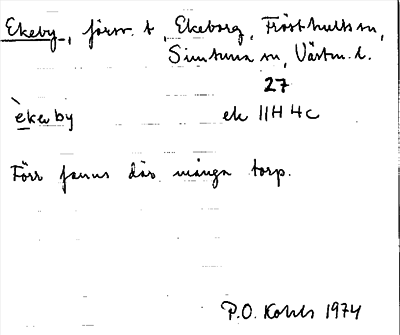 Ekeby-, försv. t, Ekeborg, Frösthults sn,
Simtuna sn, Västm. l.
27
èkeby
ek 11H 4c
Förr fanns där många torp.
P.O. Kohls 1974